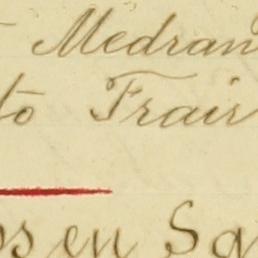 Medran
to Frair
ssen Sa